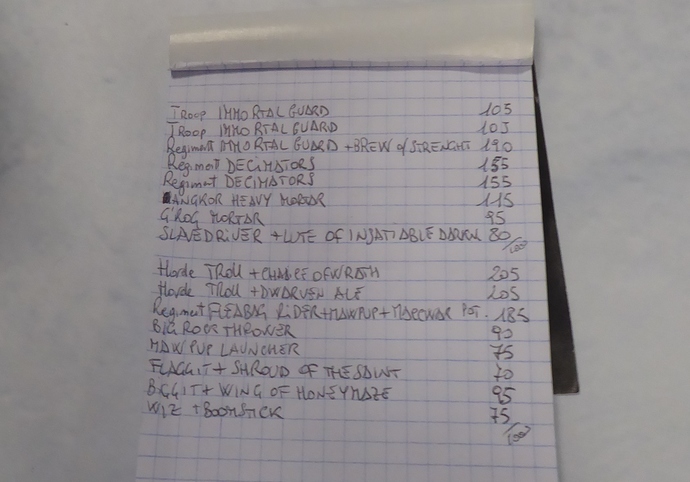 Troop IMMORTAL GUARD 105
Troop IMMORTAL GUARD 105
Regiment IMMORTAL GUARD + BREW of STRENGHT 190
Regiment DECIMATORS 155
Regiment DECIMATORS 155
ANGKOR HEAVY MORTAR 115
G'ROG MORTAR 95
SLAVEDRIVER + LUTE OF INSATIABLE DARKN 80
/1000
Horde TROLL + CHALICE OF WRATH 205
Horde TROLL + DWARVEN ALE 205
Regiment FLEABAG RIDER + MAWPUP + MAPCWAR POT. 185
BIG ROCK THROWER 90
MAWPUP LAUNCHER 75
FLAGGIT + SHROUD OF THE SAINT 70
BIGGIT + WING OF HONEYMAZE 95
WIZ + BOOMSTICK 75
/1000